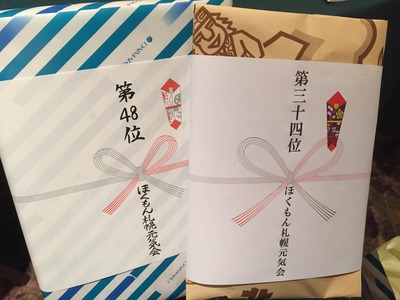 第48位
ほくもん札幌元気会
第三十四位
ほくもん札幌元気会